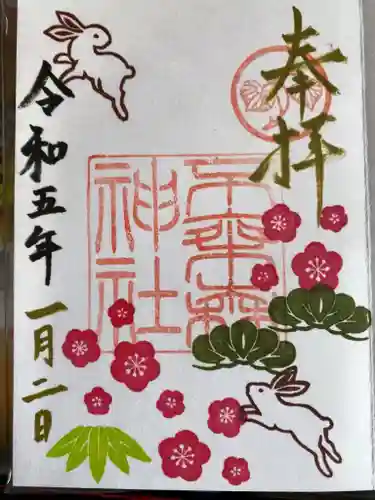 奉拝
不乗森
神社
令和五年一月二日